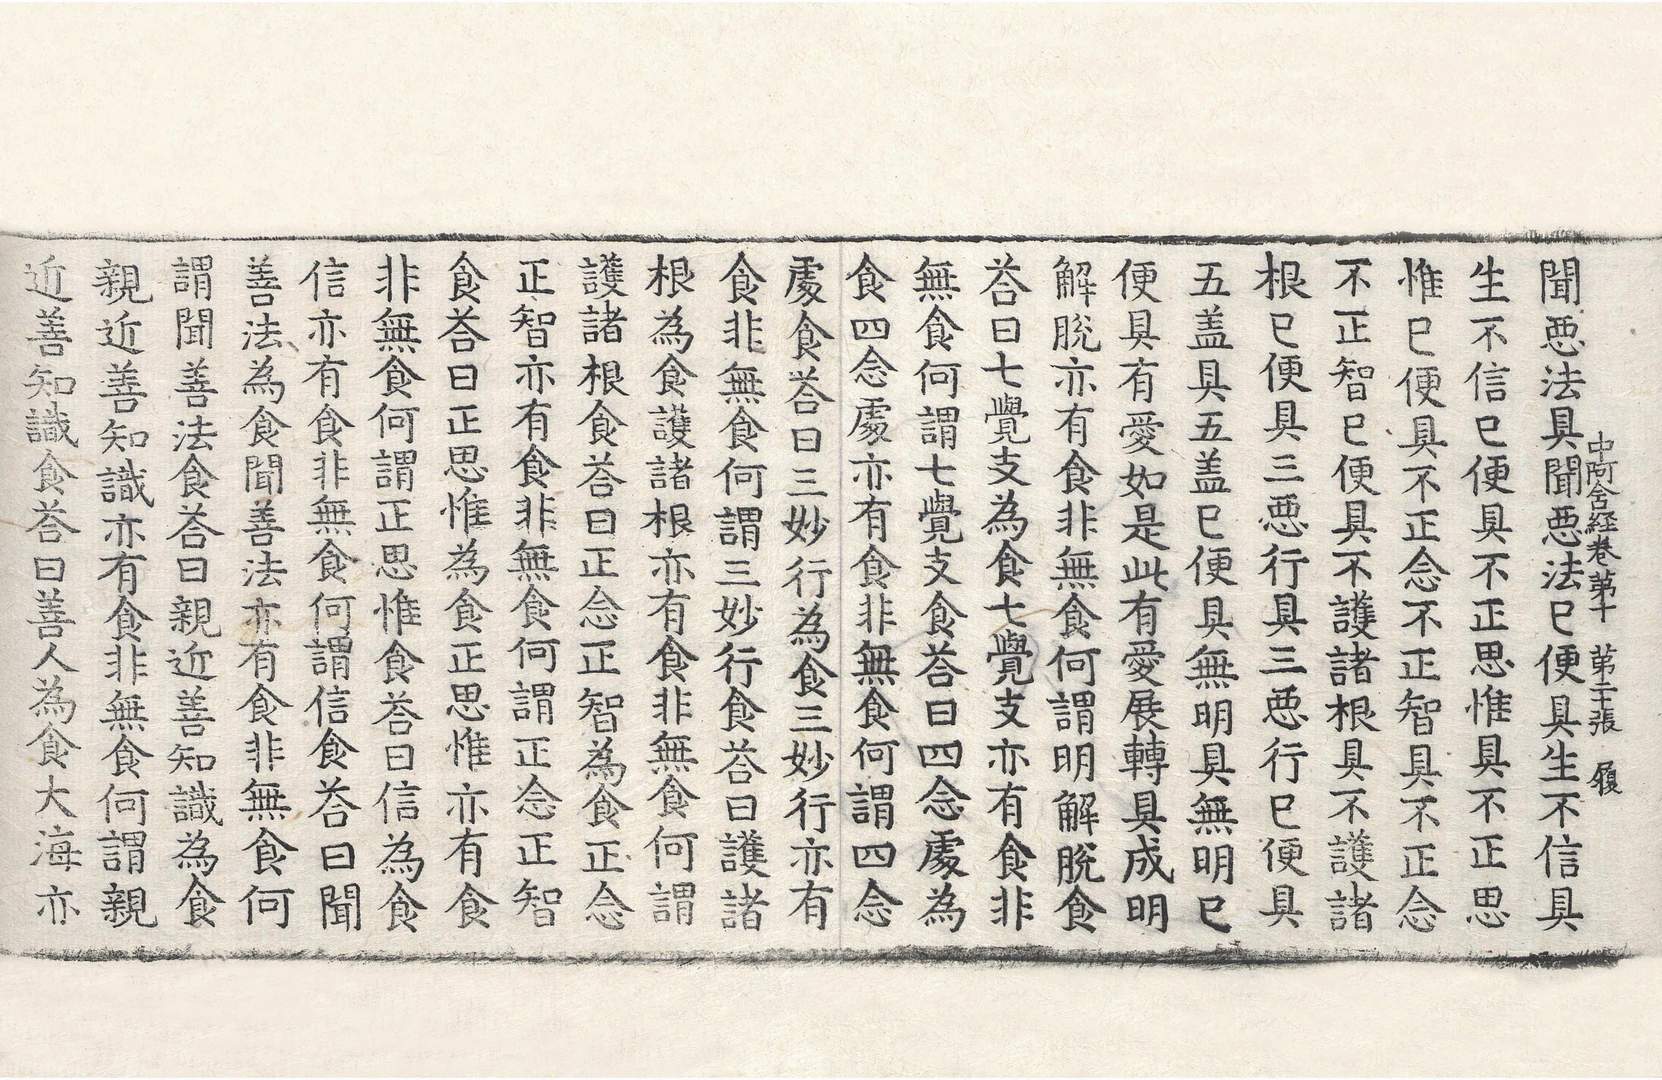 中阿含経卷苐十 苐二十張 履
聞悪法具聞悪法已便具生不信具
生不信已便具不正思惟具不正思
惟已便具不正念不正智具不正念
不正智已便具不護諸根具不護諸
根已便具三悪行具三悪行已便具
五盖具五盖已便具無明具無明已
便具有愛如是此有愛展轉具成明
解脫亦有食非無食何謂明解脫食
荅曰七覺支為食七覺支亦有食非
無食何謂七覺支食荅曰四念處為
食四念處亦有食非無食何謂四念
處食荅曰三妙行為食三妙行亦有
食非無食何謂三妙行食荅曰護諸
根為食護諸根亦有食非無食何謂
護諸根食荅曰正念正智為食正念
正智亦有食非無食何謂正念正智
食荅曰正思惟為食正思惟亦有食
非無食何謂正思惟食荅曰信為食
信亦有食非無食何謂信食荅曰聞
善法為食聞善法亦有食非無食何
謂聞善法食荅曰親近善知識為食
親近善知識亦有食非無食何謂親
近善知識食荅曰善人為食大海亦